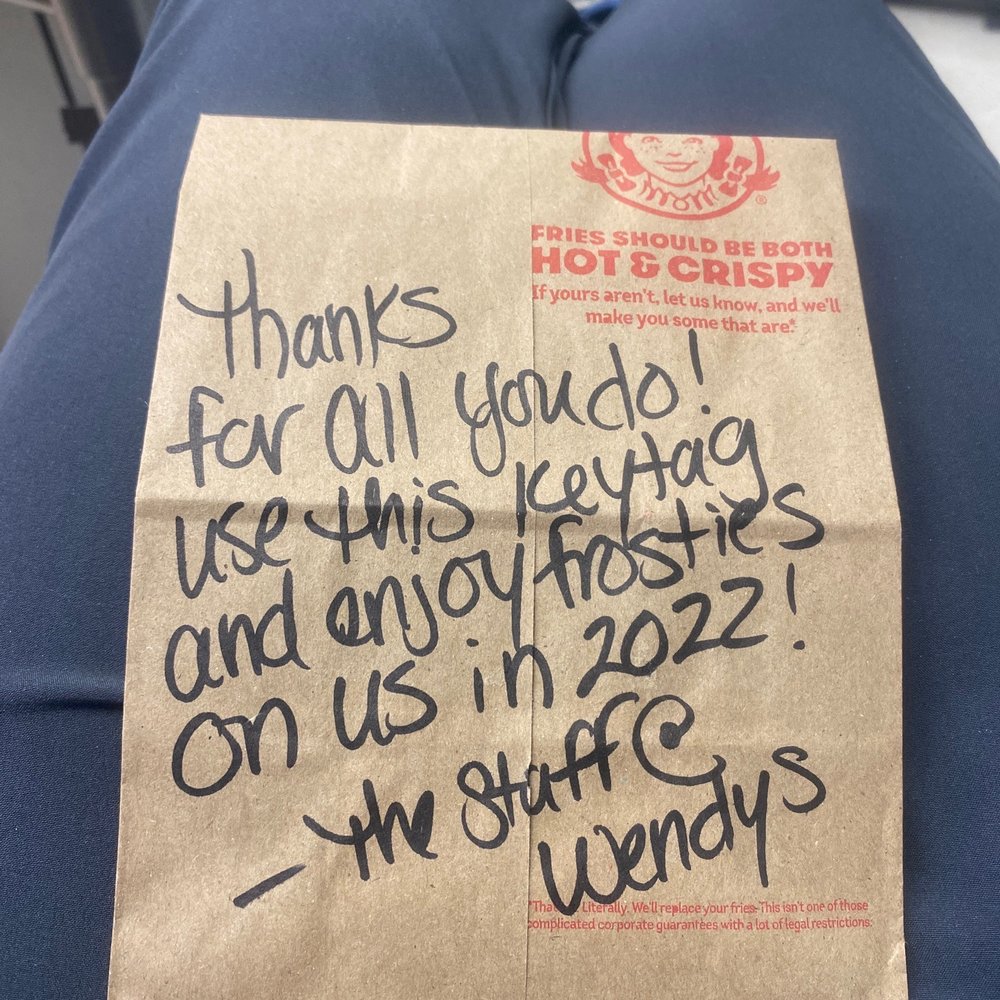 FRIES SHOULD BE BOTH
HOT & CRISPY
If yours aren't, let us know, and we'll
make you some that are.*
Thanks
for all you do!
use this keytag
and enjoy frosties
on us in 2022!
- The Staff @
Wendys
Literally. We'll replace your fries. This isn't one of those
complicated corporate guarantees with a lot of legal restrictions.